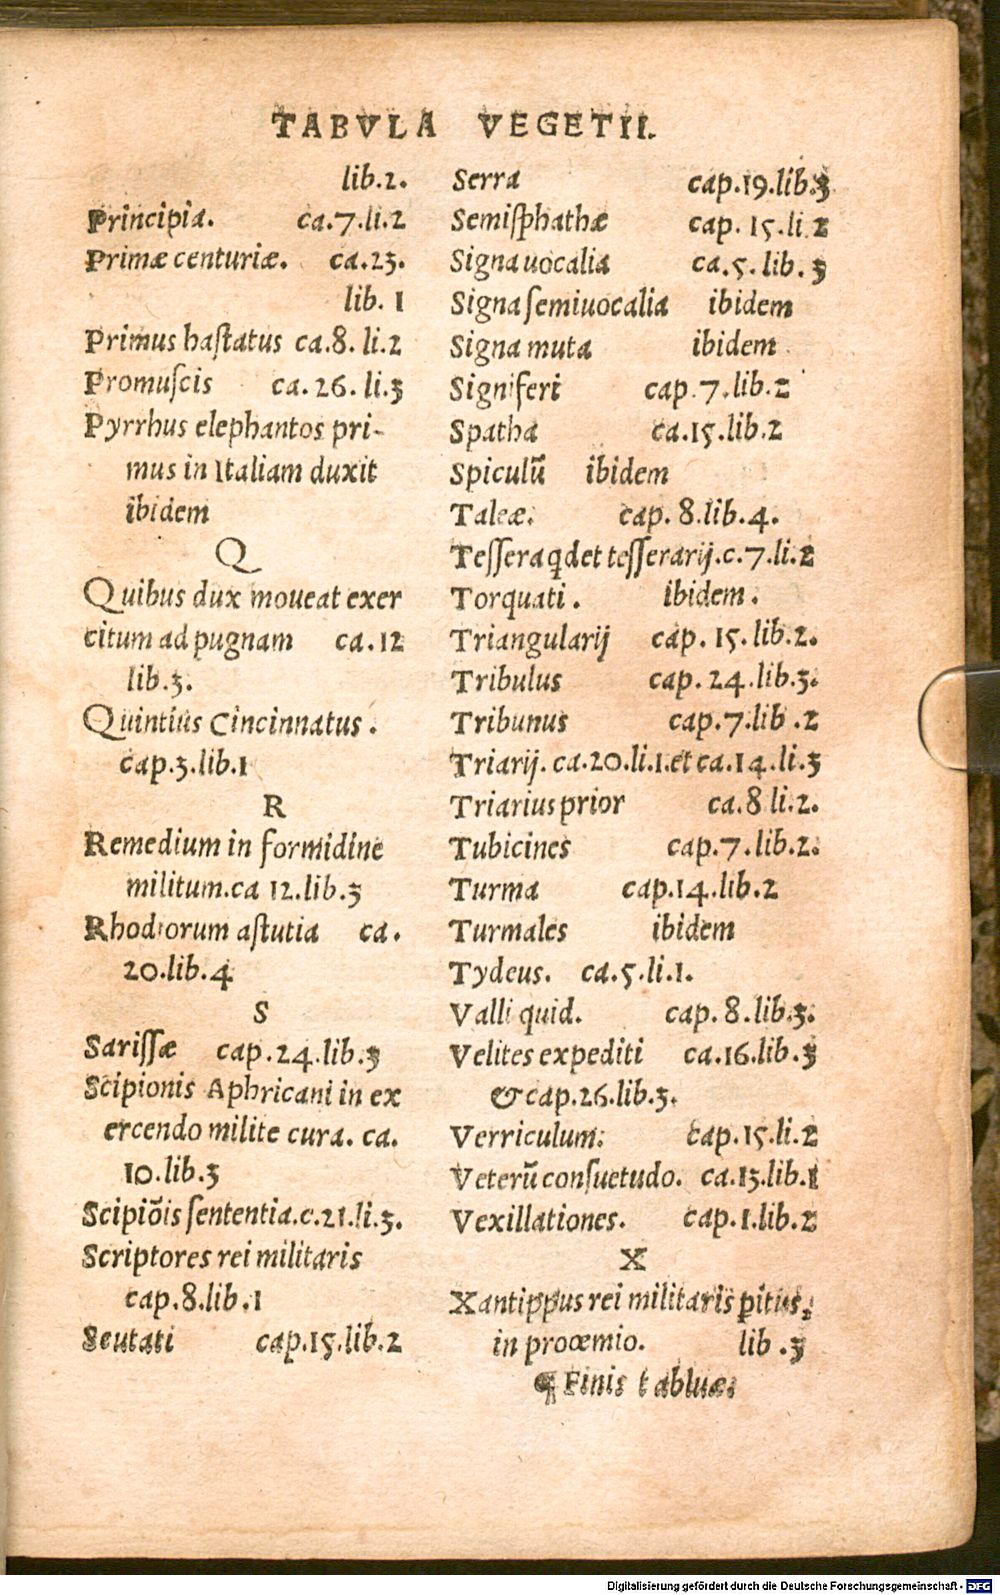 TABVLA VEGETII.
lib.2.
Principia. ca.7.li.2
Primæ centuriæ. ca.23.
lib. 1
Primus haſtatus ca.8. li.2
Promuſcis ca. 26. li.3
Pyrrhus elephantos pri-
mus in Italiam duxit
ibidem
Q
Quibus dux moueat exer
citum ad pugnam ca.12
lib.3.
Quintius Cincinnatus.
cap.3.lib.1
R
Remedium in formidine
militum.ca 12.lib.3
Rhodiorum aſtutia ca.
20.lib.4
S
Sariſſæ cap.24.lib.3
Scipionis Aphricani in ex
ercendo milite cura. ca.
10.lib.3
Scipiõis ſententia.c.21.li.3.
Scriptores rei militaris
cap.8.lib.1
Scutati cap.15.lib.2
Serra cap.19.lib.3
Semiſphathæ cap. 15.li.2
Signa uocalia ca.5.lib.3
Signa ſemiuocalia ibidem
Signa muta ibidem
Signiferi cap.7.lib.2
Spatha ca.15.lib.2
Spiculũ ibidem
Taleæ. cap. 8.lib.4.
Teſſera qd et teſſerarij.c.7.li.2
Torquati. ibidem.
Triangularij cap. 15.lib.2.
Tribulus cap.24.lib.3.
Tribunus cap.7.lib.2
Triarij. ca.20.li.1.et ca.14.li.3
Triarius prior ca.8 li.2.
Tubicines cap.7.lib.2.
Turma cap.14.lib.2
Turmales ibidem
Tydeus. ca.5.li.1.
Valli quid. cap.8.lib.3.
Velites expediti ca.16.lib.3
& cap.26.lib.3.
Verriculum. cap.15.li.2
Veterũ conſuetudo. ca.13.lib.1
Vexillationes. cap.1.lib.2
X
Xantippus rei militaris ꝑitus,
in proœmio. lib.3
¶ Finis tabluæ.
Digitalisierung gefördert durch die Deutsche Forschungsgemeinschaft - DFG